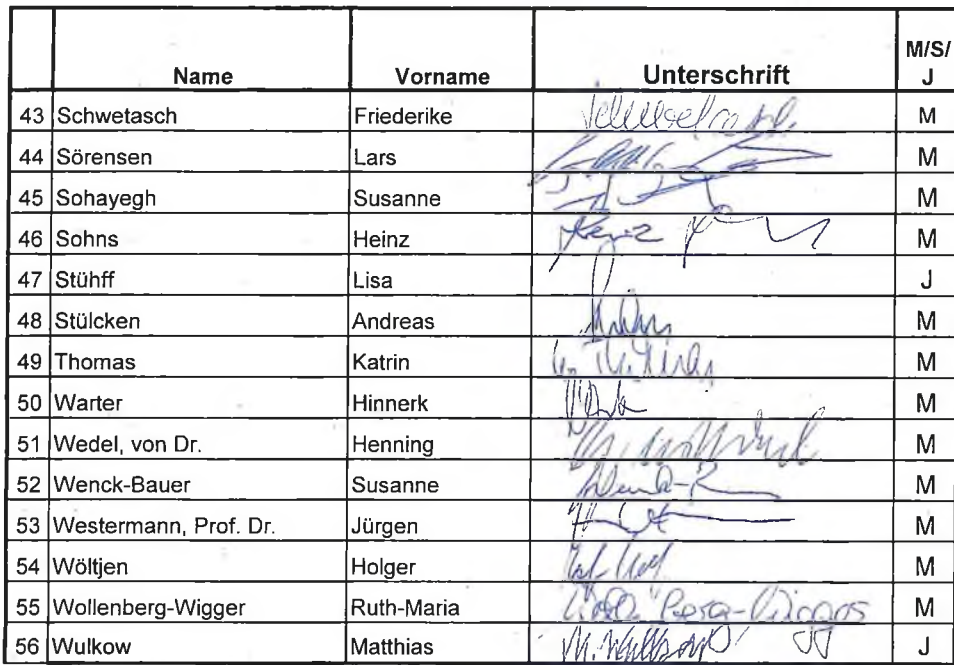 Name Vorname Unterschrift M/S/
J
43 Schwetasch Friederike M
44 Sörensen Lars M
45 Sohayegh Susanne M
46 Sohns Heinz Heinz M
47 Stühff Lisa J
48 Stülcken Andreas M
49 Thomas Katrin M
50 Warter Hinnerk M
51 Wedel, von Dr. Henning M
52 Wenck-Bauer Susanne M
53 Westermann, Prof. Dr. Jürgen M
54 Wöltjen Holger M
55 Wollenberg-Wigger Ruth-Maria M
56 Wulkow Matthias J